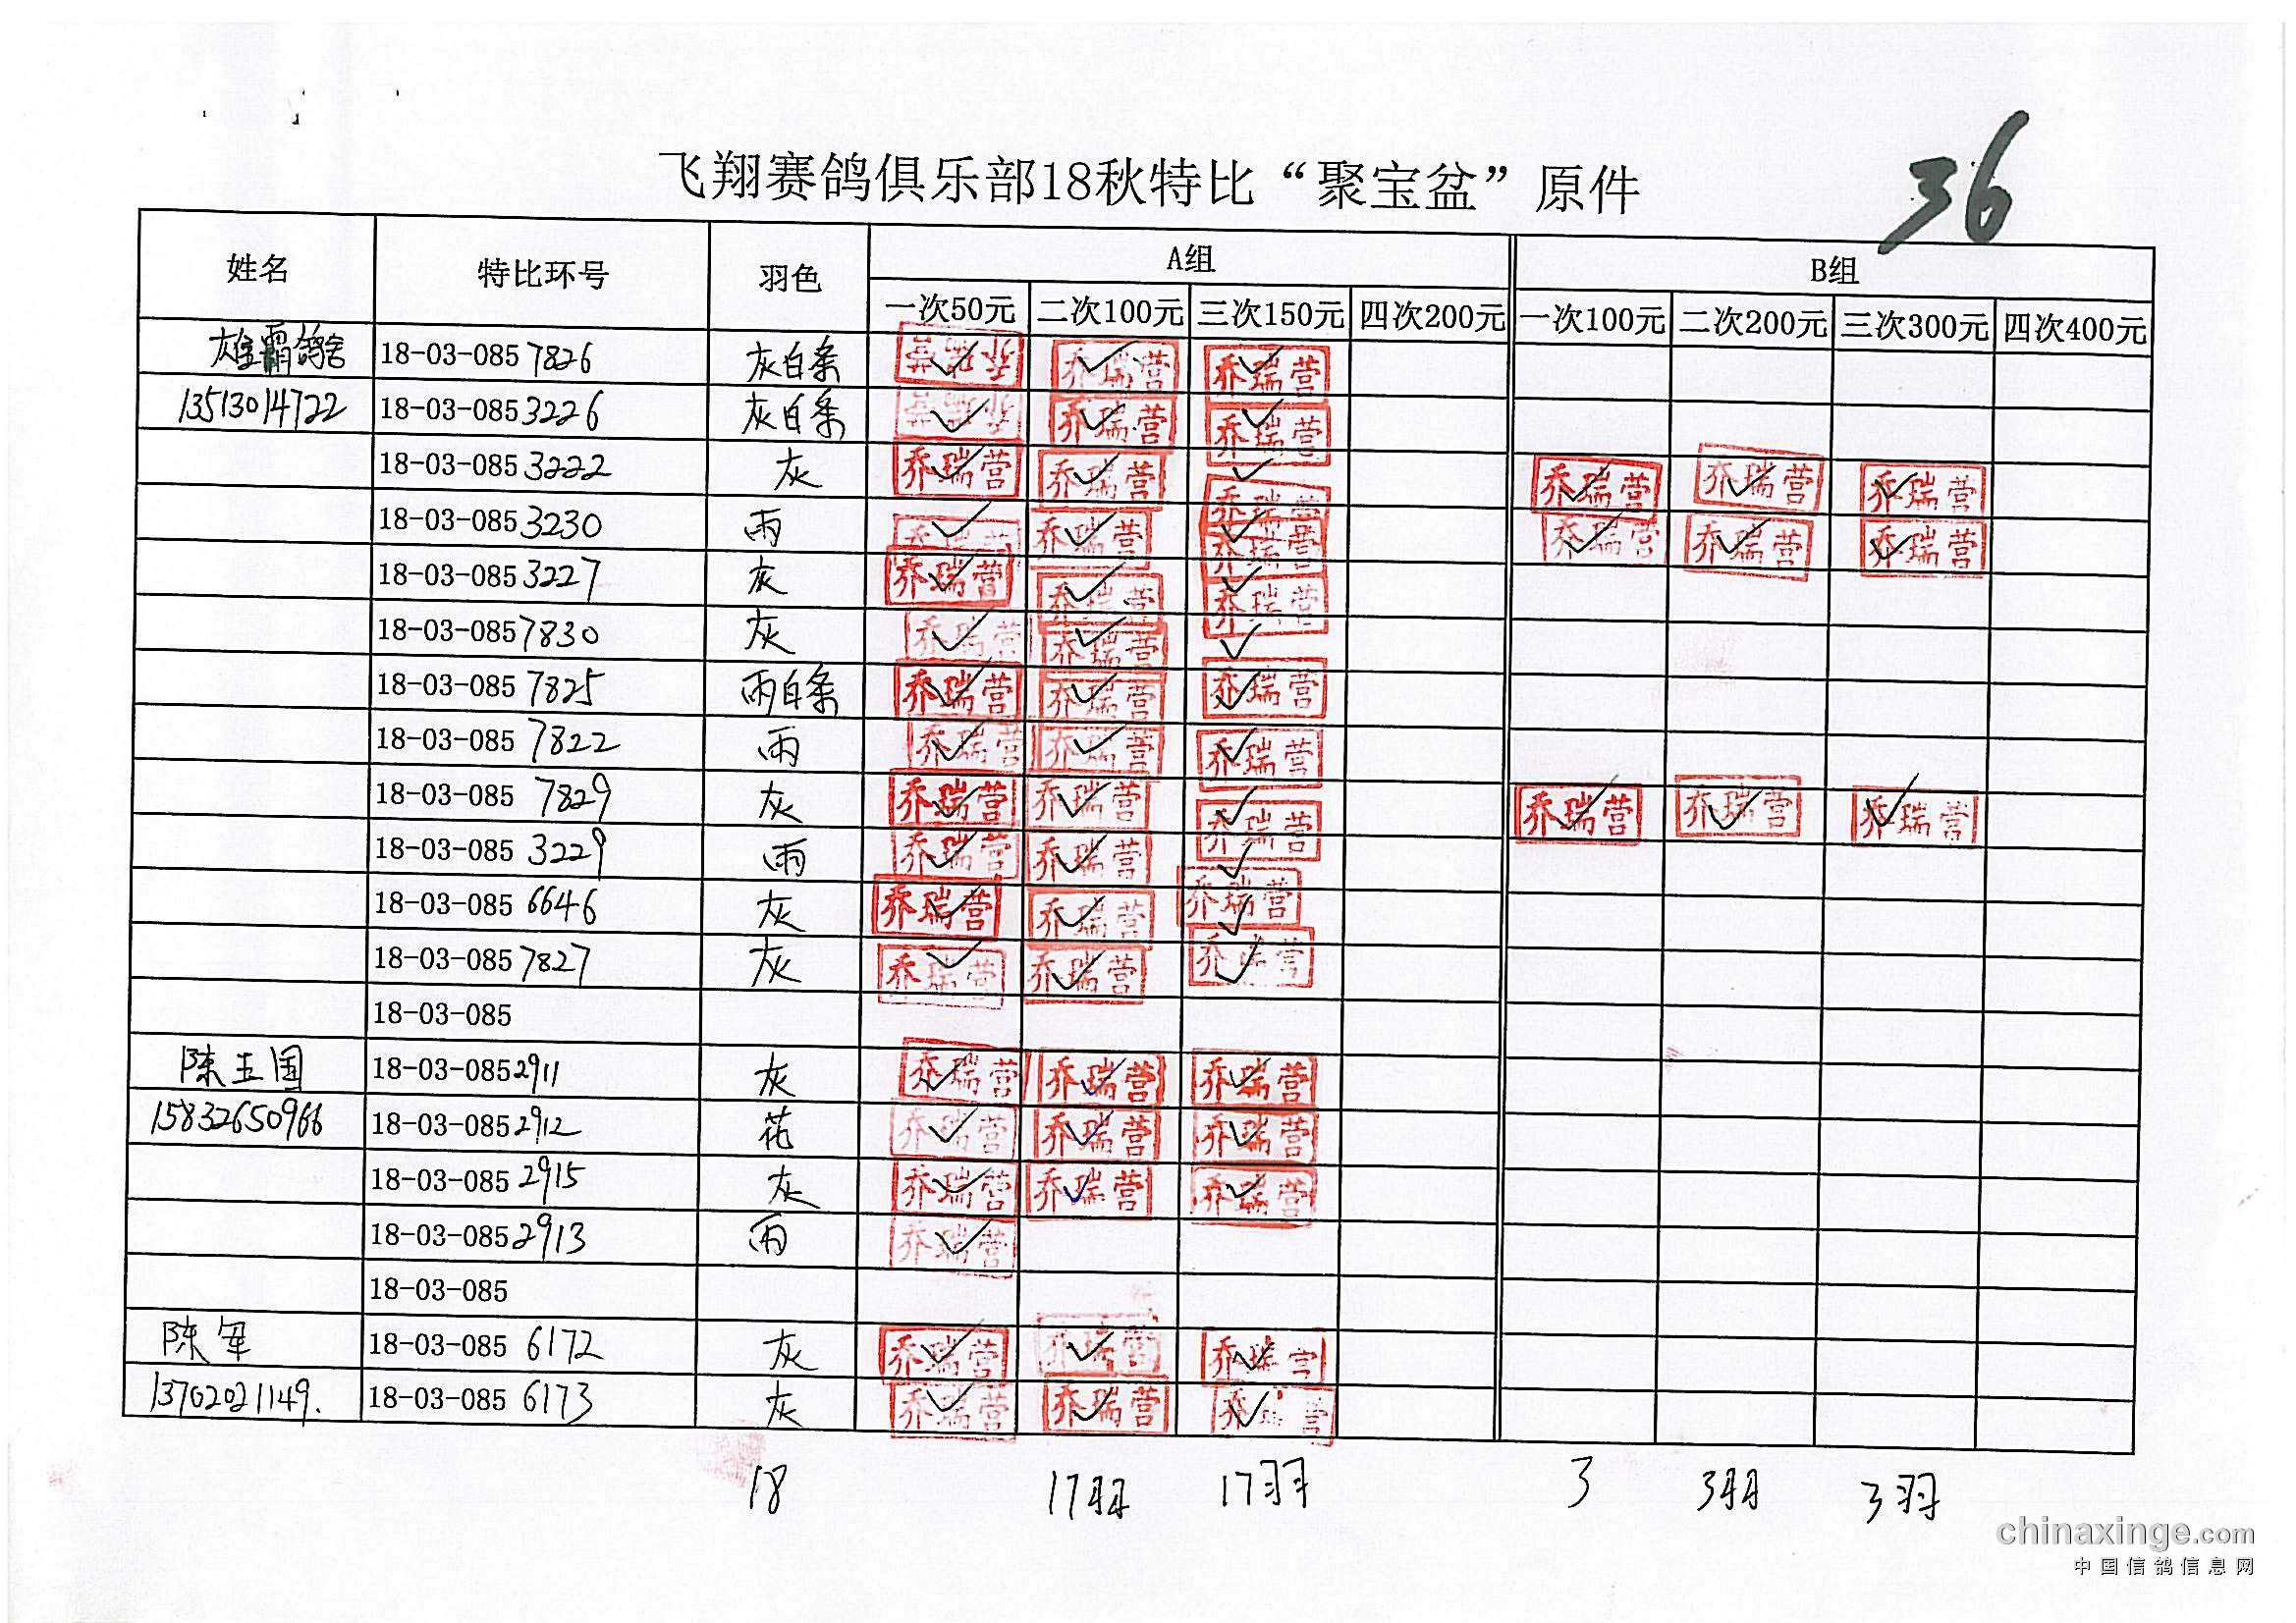 飞翔赛鸽俱乐部18秋特比“聚宝盆”原件
36
姓名 特比环号 羽色 A组 B组
一次50元 二次100元 三次150元 四次200元 一次100元 二次200元 三次300元 四次400元
雄霸鸽舍 18-03-085 7826 灰白条 乔瑞营 ✓ 乔瑞营 ✓ 乔瑞营 ✓
13513014722 18-03-085 3226 灰白条 乔瑞营 ✓ 乔瑞营 ✓ 乔瑞营 ✓
18-03-085 3222 灰 乔瑞营 ✓ 乔瑞营 ✓ 乔瑞营 ✓ 乔瑞营 ✓ 乔瑞营 ✓ 乔瑞营 ✓
18-03-085 3230 雨 乔瑞营 ✓ 乔瑞营 ✓ 乔瑞营 ✓ 乔瑞营 ✓ 乔瑞营 ✓ 乔瑞营 ✓
18-03-085 3227 灰 乔瑞营 ✓ 乔瑞营 ✓ 乔瑞营 ✓
18-03-085 7830 灰 乔瑞营 ✓ 乔瑞营 ✓ ✓
18-03-085 7825 雨白条 乔瑞营 ✓ 乔瑞营 ✓ 乔瑞营 ✓
18-03-085 7822 雨 乔瑞营 ✓ 乔瑞营 ✓ 乔瑞营 ✓
18-03-085 7829 灰 乔瑞营 ✓ 乔瑞营 ✓ 乔瑞营 ✓ 乔瑞营 ✓ 乔瑞营 ✓ 乔瑞营 ✓
18-03-085 3229 雨 乔瑞营 ✓ 乔瑞营 ✓ ✓
18-03-085 6646 灰 乔瑞营 ✓ 乔瑞营 ✓ 乔瑞营 ✓
18-03-085 7827 灰 乔瑞营 ✓ 乔瑞营 ✓ 乔瑞营 ✓
18-03-085
陈玉国 18-03-085 2911 灰 乔瑞营 ✓ 乔瑞营 ✓ 乔瑞营 ✓
15832650966 18-03-085 2912 花 乔瑞营 ✓ 乔瑞营 ✓ 乔瑞营 ✓
18-03-085 2915 灰 乔瑞营 ✓ 乔瑞营 ✓ 乔瑞营 ✓
18-03-085 2913 雨 乔瑞营 ✓
18-03-085
陈军 18-03-085 6172 灰 乔瑞营 ✓ 乔瑞营 ✓ 乔瑞营 ✓
13702021149. 18-03-085 6173 灰 乔瑞营 ✓ 乔瑞营 ✓ 乔瑞营 ✓
18 17羽 17羽 3 3羽 3羽
chinaxinge.com
中国信鸽信息网